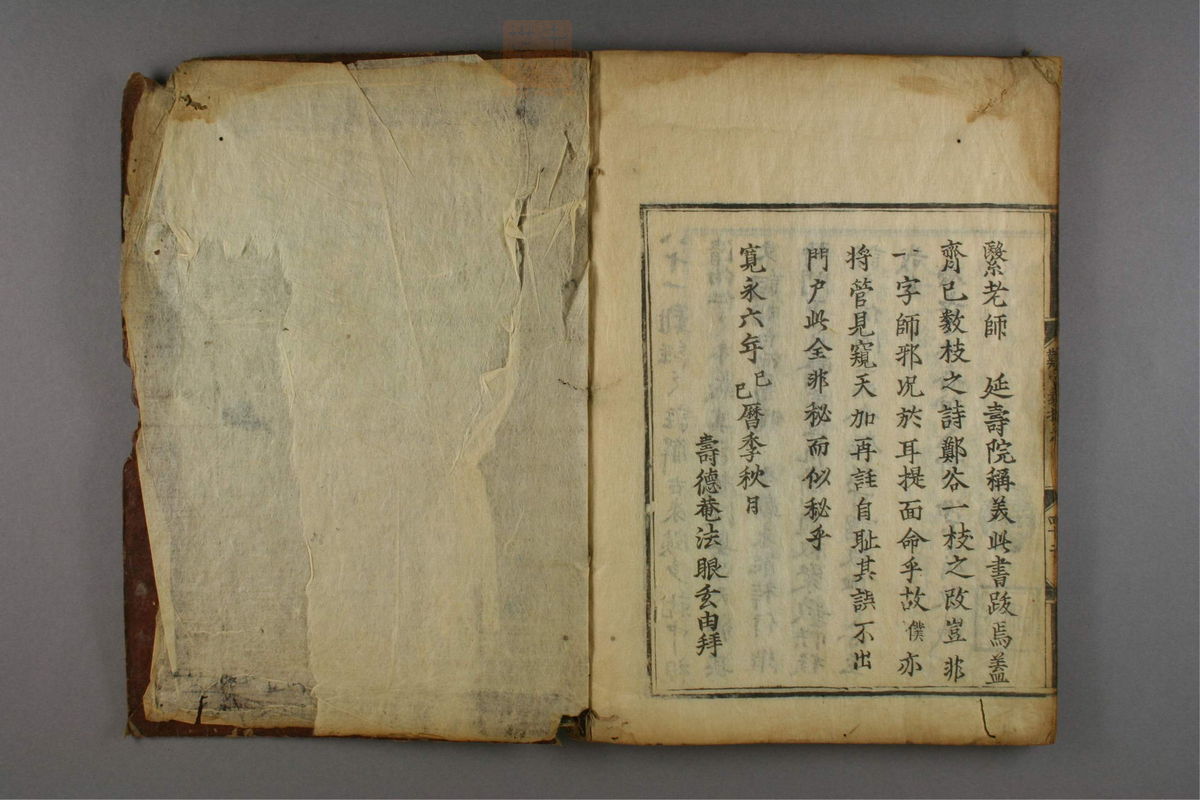 繄老師　延壽院稱美此書跋焉蓋
齊已數枝之詩鄭谷一枝之改豈非
一字師邪况於耳提面命乎故僕亦
将管見窺天加再註自耻其誤不出
門户此全非秘而似秘乎
寛永六年己巳曆季秋月
壽德菴法眼玄由拜